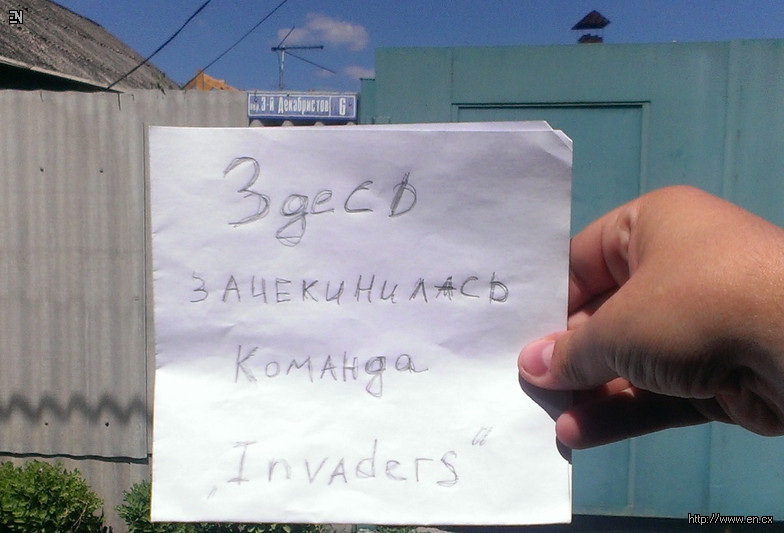 EN
пер. 3-й Декабристов 6
Здесь
зачекинилась
команда
„Invaders“
http://www.en.cx